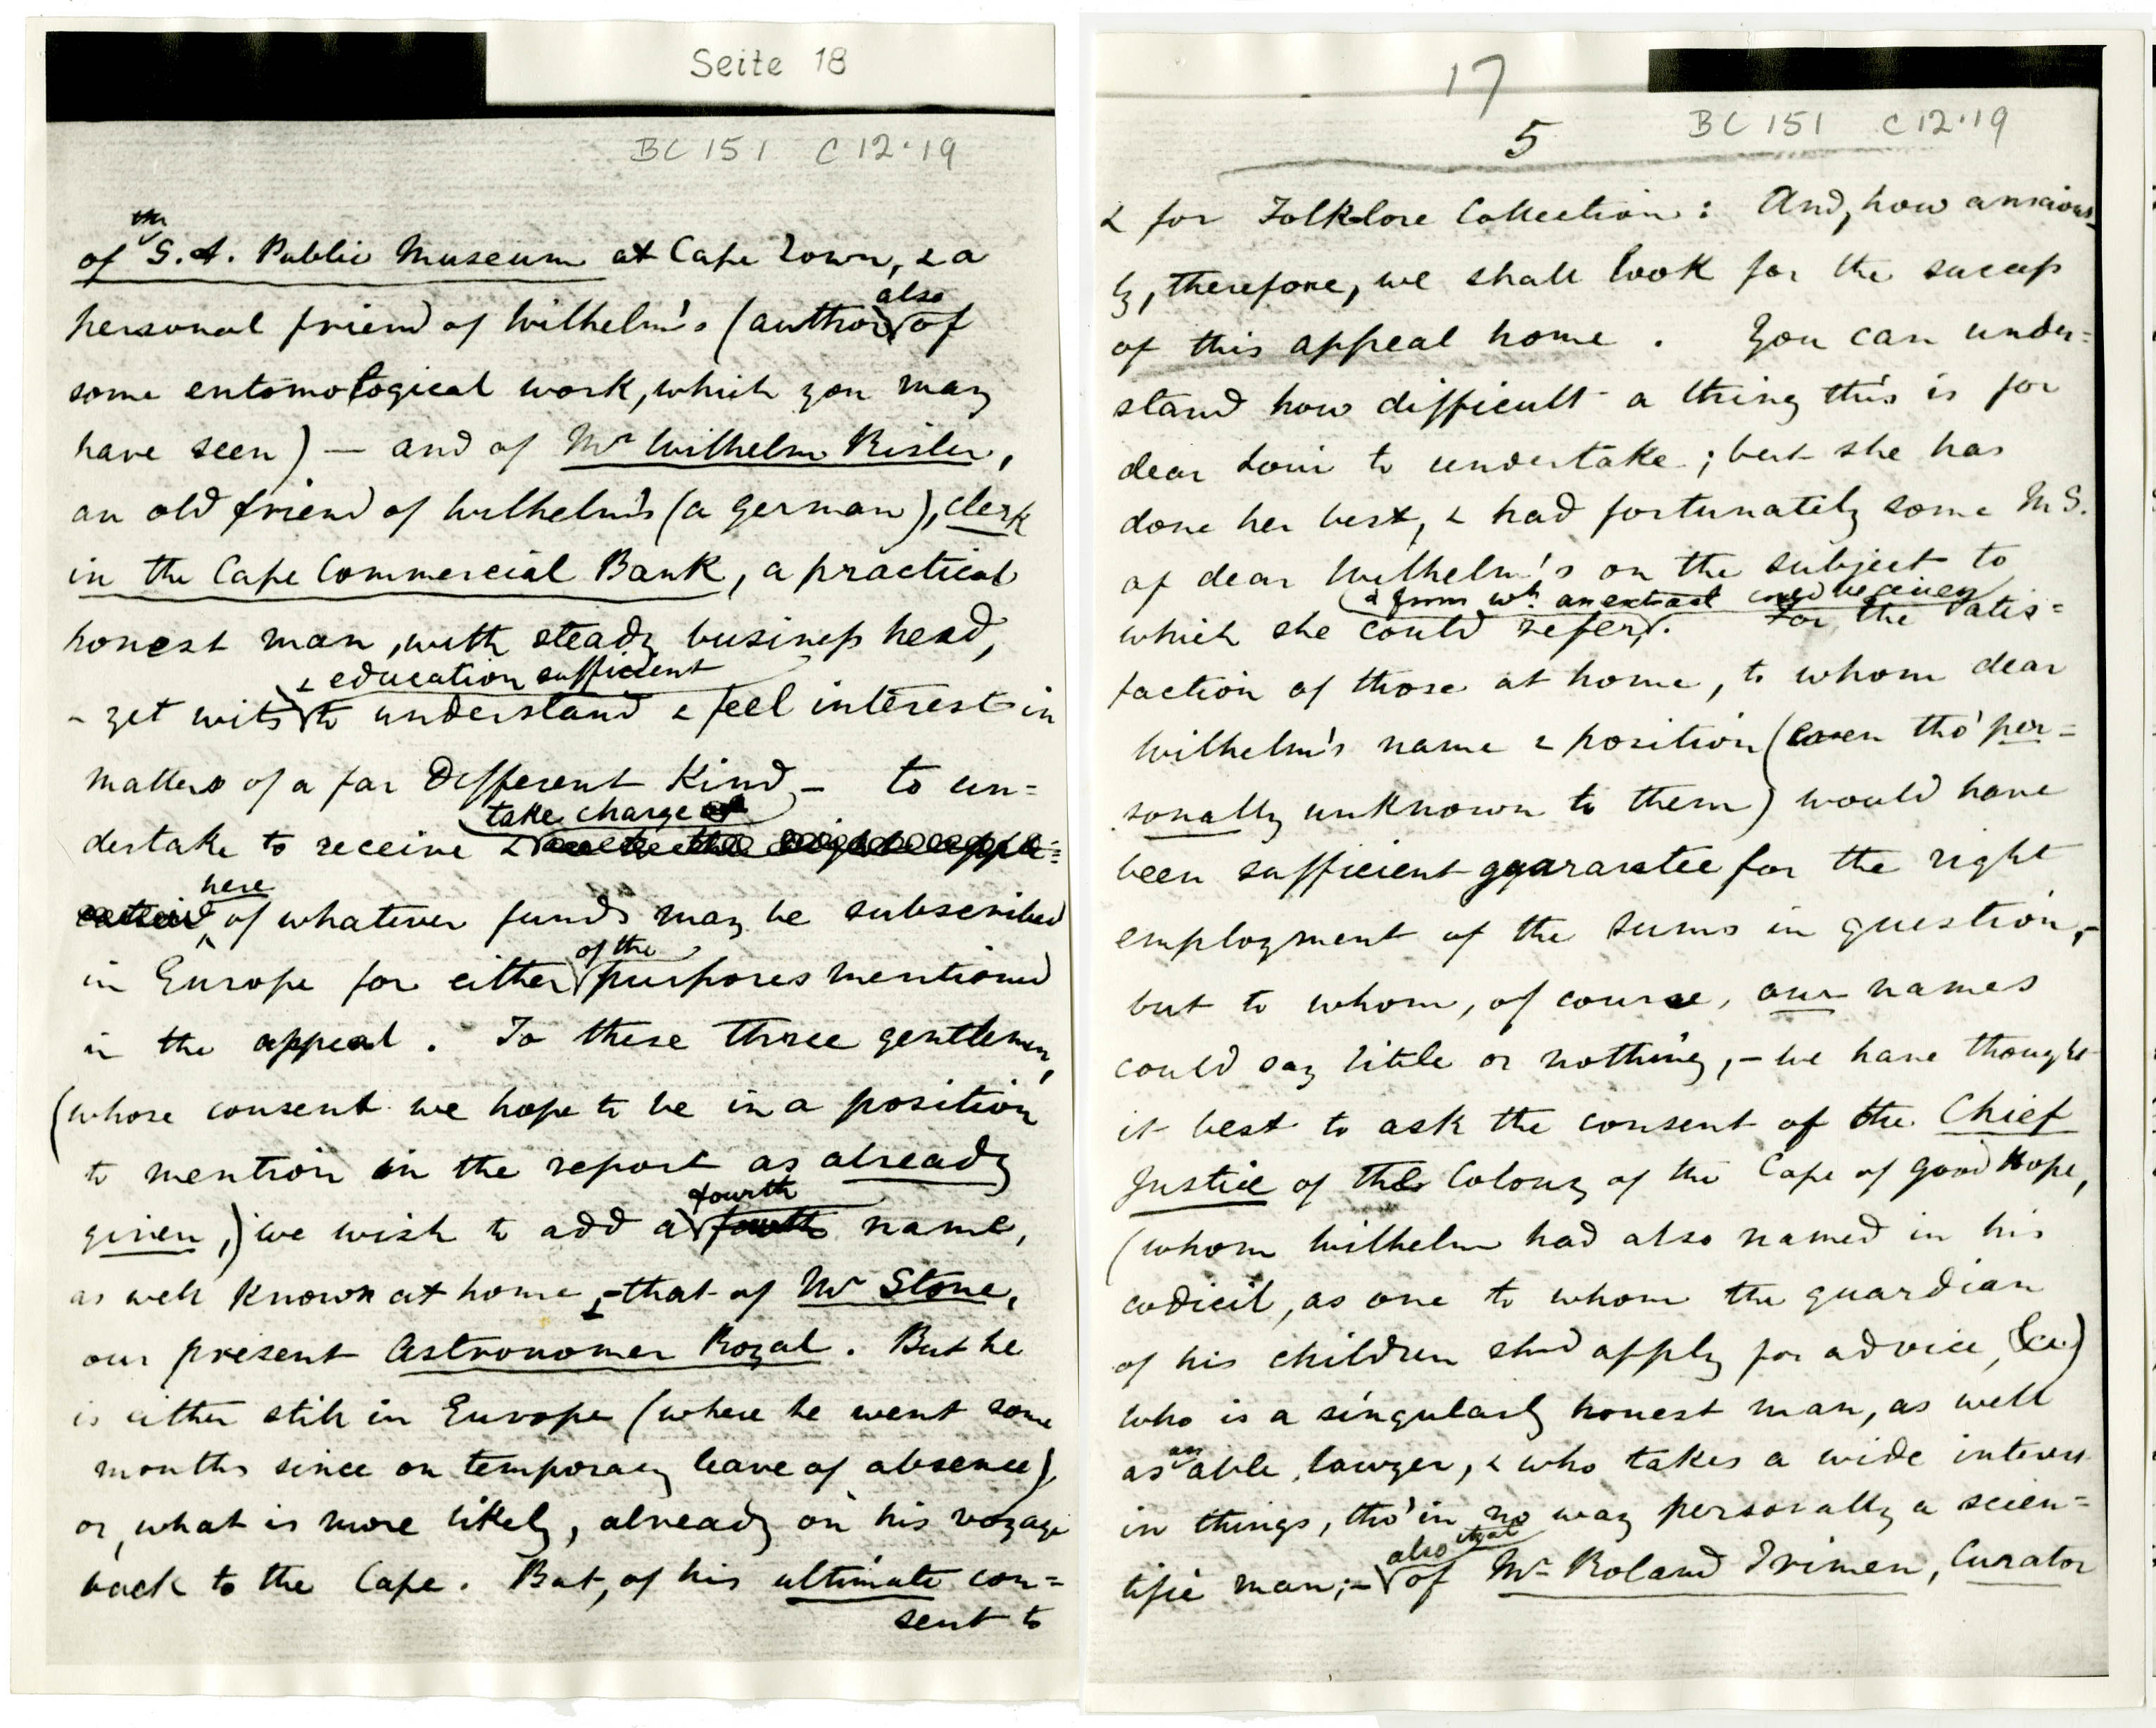 Seite 18
BC 151 C 12.19
the
of S.A. Public Museum at Cape Town, & a
also
personal friend of Wilhelm's (author of
some entomological work, which you may
have seen) — and of Mr Wilhelm Risler,
an old friend of Wilhelm's (a German), clerk
in the Cape Commercial Bank, a practical
honest man, with steady businefs head,
& education sufficient
- yet wits to understand & feel interest in
matters of a far different kind, - to un=
take charge of
dertake to receive &
here
of whatever funds may be subscribed
of the
in Europe for either purposes mentioned
in the appeal. To these three gentlemen,
(whose consent we hope to be in a position
to mention in the report as already
fourth
given,) we wish to add a fourth name,
as well known at home, - that of Mr Stone,
our present Astronomer Royal. But he
is either still in Europe (where he went some
months since on temporary leave of absence),
or, what is more likely, already on his voyage
back to the Cape. But, of his ultimate con=
sent to
17
5
BC 151 C 12.19
& for Folklore Collection: And, how anxious=
ly, therefore, we shall look for the succefs
of this appeal home. You can under=
stand how difficult a thing this is for
dear Loui to undertake; but she has
done her best, & had fortunately some M.S.
of dear Wilhelm's on the subject to
& from wh. an extract cd be given
which she could refer. For the satis=
faction of those at home, to whom dear
Wilhelm's name & position (even tho' per=
sonally unknown to them) would have
been sufficient guarantee for the right
employment of the sums in question, -
but to whom, of course, our names
could say little or nothing, - we have thought
it best to ask the consent of the Chief
Justice of the Colony of the Cape of Good Hope,
(whom Wilhelm had also named in his
codicil, as one to whom the guardian
of his children shd apply for advice, &c.)
who is a singularly honest man, as well
an
as able lawyer, & who takes a wide interest
in things, tho' in no way personally a scien=
also that
tific man; - of Mr Roland Trimen, Curator